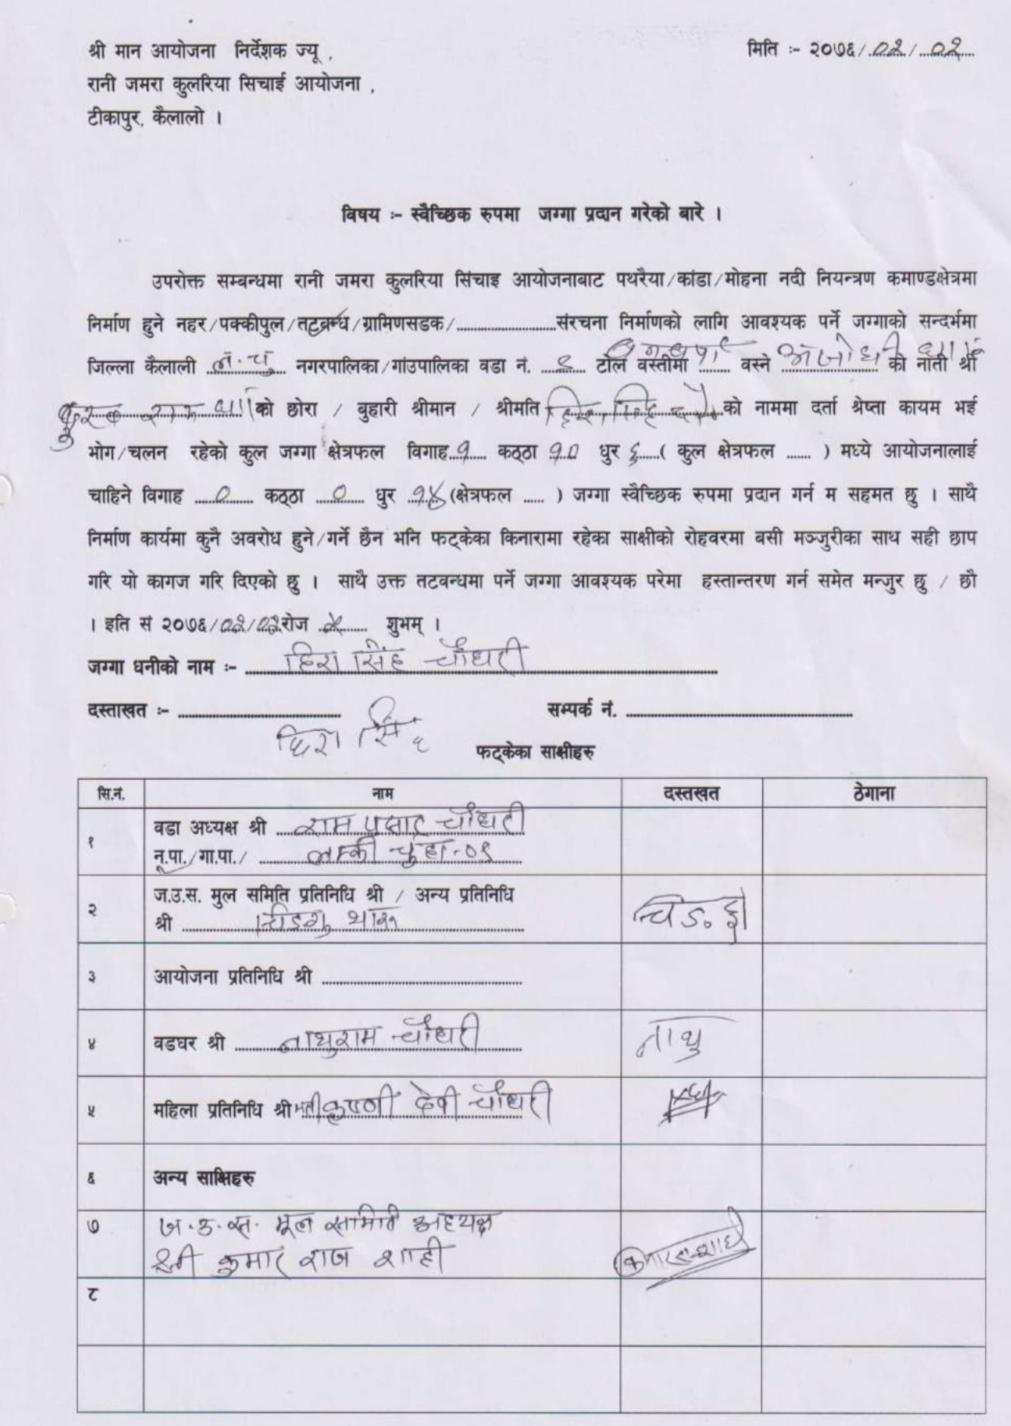 श्री मान आयोजना निर्देशक ज्यू ,
मिति :- २०७६/०२/०२
रानी जमरा कुलरिया सिचाई आयोजना ,
टीकापुर, कैलालो ।
विषय :- स्वैच्छिक रुपमा जग्गा प्रदान गरेको बारे ।
उपरोक्त सम्बन्धमा रानी जमरा कुलरिया सिंचाइ आयोजनाबाट पथरैया/कांडा/मोहना नदी नियन्त्रण कमाण्डक्षेत्रमा
निर्माण हुने नहर/पक्कीपुल/तट्वन्ध/ग्रामिणसडक/...............संरचना निर्माणको लागि आवश्यक पर्ने जग्गाको सन्दर्भमा
जिल्ला कैलाली ल.चु नगरपालिका/गांउपालिका वडा नं. टोल वस्तीमा वस्ने को नाती श्री
को छोरा / बुहारी श्रीमान / श्रीमति को नाममा दर्ता श्रेष्ता कायम भई
भोग/चलन रहेको कुल जग्गा क्षेत्रफल विगाह १ कठ्ठा १० धुर ६ ( कुल क्षेत्रफल ...... ) मध्ये आयोजनालाई
चाहिने विगाह ० कठ्ठा ० धुर १४ (क्षेत्रफल ...... ) जग्गा स्वैच्छिक रुपमा प्रदान गर्न म सहमत छु । साथै
निर्माण कार्यमा कुनै अवरोध हुने/गर्ने छैन भनि फट्केका किनारामा रहेका साक्षीको रोहवरमा बसी मञ्जुरीका साथ सही छाप
गरि यो कागज गरि दिएको छु । साथै उक्त तटवन्धमा पर्ने जग्गा आवश्यक परेमा हस्तान्तरण गर्न समेत मन्जुर छु / छौ
। इति सं २०७६/०२/०२ रोज ५ शुभम् ।
जग्गा धनीको नाम :- हिरा सिंह चौधरी
दस्ताखत :- .................... सम्पर्क नं. ....................
हिरा सिंह
फट्केका साक्षीहरु
सि.नं. नाम दस्तखत ठेगाना
१ वडा अध्यक्ष श्री राम प्रसाद चौधरी
न.पा./गा.पा./ लम्की चुहा-०९
२ ज.उ.स. मुल समिति प्रतिनिधि श्री / अन्य प्रतिनिधि
श्री
३ आयोजना प्रतिनिधि श्री ....................
४ वडघर श्री नाथुराम चौधरी नाथु
५ महिला प्रतिनिधि श्रीमती कृष्णी देवी चौधरी
६ अन्य साक्षिहरु
७ ज.उ.स. मूल समिति अध्यक्ष
श्री कुमार राज शाही
८